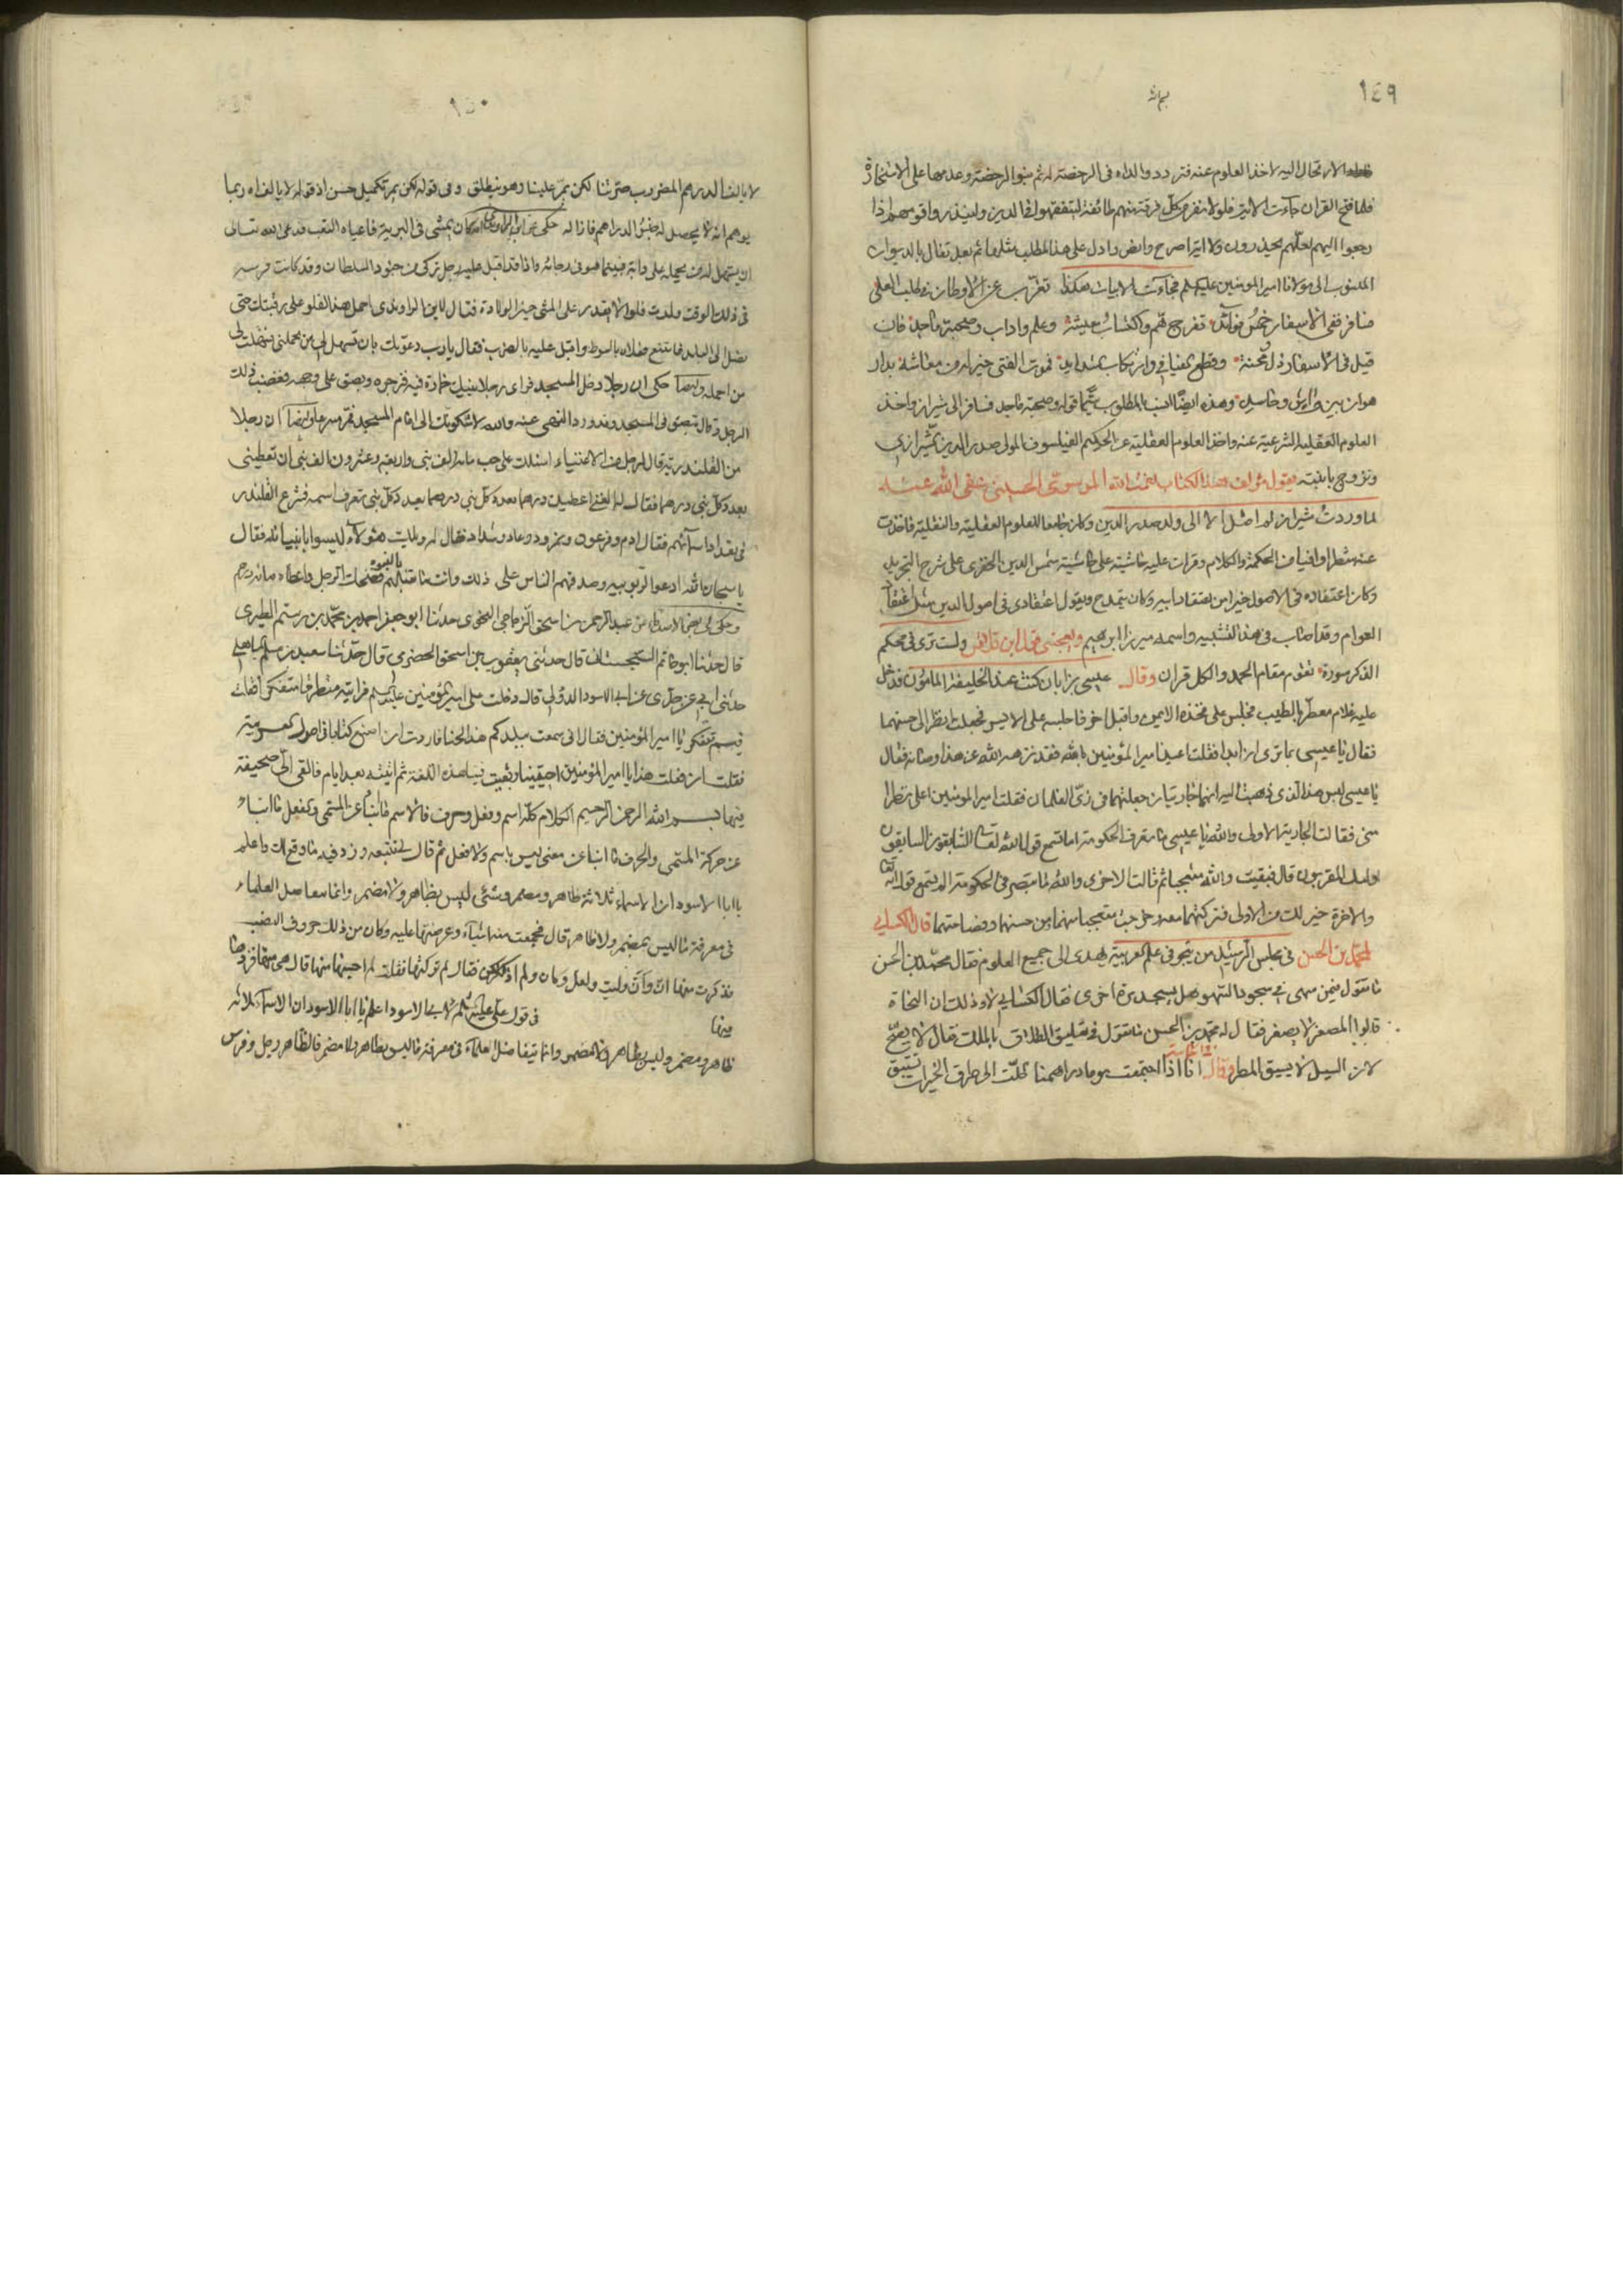 ١٤٩
الارتحال اليه لاخذ العلوم عنه فتردد والداه فى الرخصة له ثم بنوا الرخصة وعدمها على الاستخارة
فلما فتح القران جاءت الاية فلولا نفر من كل فرقة منهم طائفة ليتفقهوا فى الدين ولينذروا قومهم اذا
رجعوا اليهم لعلهم يحذرون ولا اية اصرح وانص وادل على هذا المطلب مثلها ثم بعد تفال بالديوان
المنسوب الى مولانا امير المومنين عليه السلم فجاءت الابيات هكذا تغرب عن الاوطان فى طلب العلى
وسافر ففى الاسفار خمس فوائد تفرج هم واكتساب معيشة وعلم واداب وصحبة ماجد فان
قيل فى الاسفار ذل ومحنة وقطع الفيافى وارتكاب شدايد فموت الفتى خير له من معاشه بدار
هوان بين واش وحاسد وهذه ايضا انسب بالمطلوب سيما قوله وصحبة ماجد فسافر الى شيراز واخذ
العلوم الشرعية عنه واخذ العلوم العقلية عن الحكيم الفيلسوف المولى صدر الدين الشيرازى
وتزوج بابنته يقول مؤلف هذا الكتاب نعمت الله الموسوى الحسينى عفى الله عنه
لما وردت شيراز لم اصل الا الى ولد صدر الدين وكان جامعا للعلوم العقلية والنقلية فاخذت
عنه شطرا وافيا من الحكمة والكلام وقرات عليه حاشيته على حاشية شمس الدين الخفرى على شرح التجريد
وكان اعتقاده فى الاصول خيرا من اعتقاد ابيه وكان يتمدح ويقول اعتقادى فى اصول الدين مثل اعتقاد
العوام وقد اصاب فى هذا التشبيه واسمه ميرزا ابرهيم ويعجبنى قول ابن قلاقس ولست ترى فى محكم
الذكر سورة تقوم مقام الحمد والكل قران وقال عيسى بن ابان كنت عند الخليفة المامون فدخل
عليه غلام معطر بالطيب فجلس على فخذه الايمن واقبل اخر فاجلسه على الايسر فجعلت انظر الى حسنهما
فقال يا عيسى ما ترى فقلت اعيذ امير المؤمنين بالله فقد نزهه الله عن هذا وصانه فقال
يا عيسى ليس هذا الذى ذهبت اليه انهما جاريتان جعلتهما فى زى الغلمان فقلت امير المومنين اعلى نظرا
منى فقالت الجارية الاولى والله يا عيسى ما تعرف الحكومة اما تسمع قول الله تعالى السابقون السابقون
اولئك المقربون قال فبقيت والله متعجبا ثم قالت الاخرى والله ما تبصر فى الحكومة الم تسمع قوله تعالى
والاخرة خير لك من الاولى فتركتهما معه وخرجت متعجبا منهما من حسنهما وفصاحتهما قال الكسائى
لمحمد بن الحسن فى مجلس الرشيد من تبحر فى علم العربية يهدى الى جميع العلوم فقال محمد بن الحسن
ما تقول فيمن سهى فى سجود السهو هل يسجد مرة اخرى فقال الكسائى لا وذلك ان النحاة
قالوا المصغر لا يصغر فقال له محمد بن الحسن ما تقول فى تعليق الطلاق بالملك فقال لا يصح
لان السيل لا يسبق المطر وقال انا اذا اجتمعت يوما دراهمنا ظلت الى طرق الخيرات تستبق
١٥٠
لا يالف الدرهم المضروب صرتنا لكن يمر علينا وهو منطلق وفى قوله لكن يمر تكميل حسن اذ قوله لا يالف اه ربما
يوهم انه لا يحصل له جنس الدراهم فازاله حكى عن ابن الراوندى انه كان يمشى فى البرية فاعياه التعب فدعى الله تعالى
ان يسهل له من يحمله على دابة فبينما هو فى دعائه واذا قد اقبل عليه رجل تركى من جنود السلطان وقد كانت فرسه
فى ذلك الوقت ولدت فلوا لا يقدر على المشى حين الولادة فقال لابن الراوندى احمل هذا الفلو على رقبتك حتى
نصل الى البلد فامتنع فعلاه بالسوط واقبل عليه بالضرب فقال يا رب دعوتك بان تسهل لى من يحملنى فتفضلت لى
من احمله وايضا حكى ان رجلا دخل المسجد فراى رجلا وبصق على وجهه فغضب لذلك
الرجل وقال تبصق فى المسجد وقد ورد النهى عنه والله لاشكونك الى امام المسجد وايضا ان رجلا
من القلندرية قال لرجل من الاغنياء اسئلك على حب مائة الف نبى واربعة وعشرون الف نبى ان تعطينى
بعدد كل نبى درهما فقال له الغنى اعطيك درهما بعدد كل نبى تعرف اسمه فشرع القلندر
فى تعداد اسمائهم فقال ادم وفرعون ونمرود وعاد وشداد فقال له ويلك هؤلاء ليسوا بانبيائه فقال
يا سبحان الله ادعوا الربوبية وصدقهم الناس على ذلك وانت ما تقبلهم بالنبوة فضحك الرجل واعطاه مائة درهم
وحكى لى بعض عن عبد الرحمن بن اسحق الزجاجى النحوى حدثنا ابو جعفر احمد بن محمد بن رستم الطبرى
قال حدثنا ابو حاتم السجستانى قال حدثنى يعقوب بن اسحق الحضرمى قال حدثنا سعيد بن سلم الباهلى
حدثنى ابى عن جدى عن ابى الاسود الدؤلى قال دخلت على امير المؤمنين عليه السلم فرايته مطرقا متفكرا فقلت
فيم تتفكر يا امير المؤمنين فقال انى سمعت ببلدكم هذا لحنا فاردت ان اصنع كتابا فى اصول العربية
فقلت ان فعلت هذا يا امير المؤمنين احييتنا وبقيت فينا هذه اللغة ثم اتيته بعد ايام فالقى الى صحيفة
فيها بسم الله الرحمن الرحيم الكلام كله اسم وفعل وحرف فالاسم ما انبا عن المسمى والفعل ما انبا
عن حركة المسمى والحرف ما انبا عن معنى ليس باسم ولا فعل ثم قال لى تتبعه وزد فيه ما وقع لك واعلم
يا ابا الاسود ان الاسماء ثلاثة ظاهر ومضمر وشئ ليس بظاهر ولا مضمر وانما تفاضل العلماء
فى معرفة ما ليس بمضمر ولا ظاهر قال فجمعت منها اشياء وعرضتها عليه وكان من ذلك حروف النصب
فذكرت منها ان وان وليت ولعل وكان ولم اذكر لكن فقال لم تركتها فقلت لم احسبها منها قال هى منها فزدها
فيها
فى قول على عليه السلم لابى الاسود اعلم يا ابا الاسود ان الاسماء ثلاثه
ظاهر ومضمر وليس بظاهر ولا مضمر وانما يتفاضل العلماء فى معرفة ما ليس بظاهر ولا مضمر فالظاهر رجل وفرس